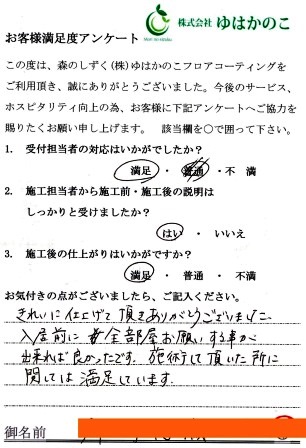 株式会社 ゆはかのこ
お客様満足度アンケート
この度は、森のしずく(株)ゆはかのこフロアコーティングを
ご利用頂き、誠にありがとうございました。今後のサービス、
ホスピタリティ向上の為、お客様に下記アンケートへご協力を
賜りたくお願い申し上げます。 該当欄を○で囲って下さい。
1. 受付担当者の対応はいかがでしたか?
満足 ・ 普通 ・ 不 満
2. 施工担当者から施工前・施工後の説明は
しっかりと受けましたか?
はい ・ いいえ
3. 施工後の仕上がりはいかがですか?
満足 ・ 普通 ・ 不満
お気付きの点がございましたら、ご記入ください。
きれいに仕上げて頂きありがとうございました
入居前に全部屋お願いする事が
出来れば良かったです。施術して頂いた所に
関しては満足しています。
御名前